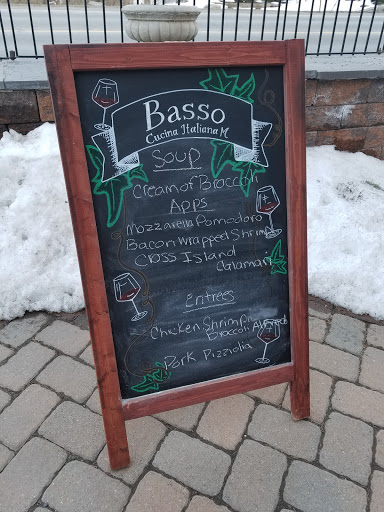 Basso
Cucina Italiana M
Soup
Cream of Broccoli
Apps
Mozzarella Pomodoro
Bacon Wrapped Shrimp
Cross Island
Calamari
Entrees
Chicken Shrimp
Broccoli Alfredo
Pork Pizziolia